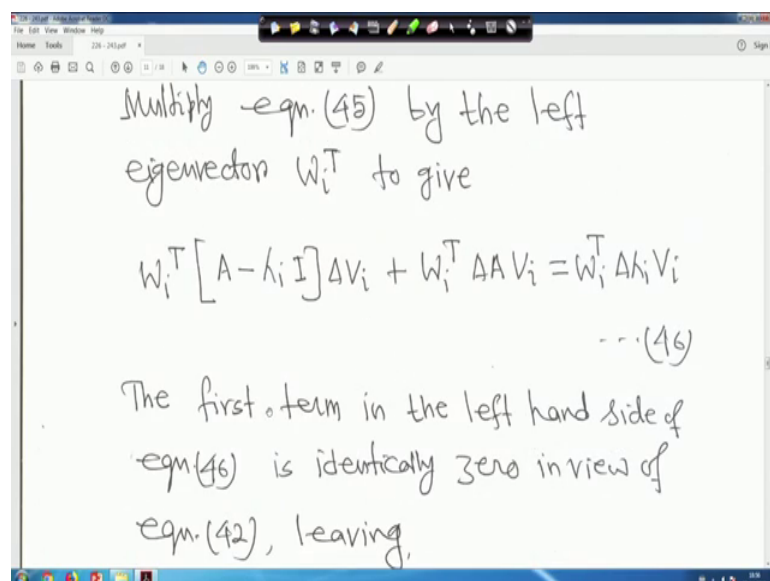 226 - 243.pdf - Adobe Acrobat Reader DC
File Edit View Window Help
Home Tools 226 - 243.pdf × Sign
Multiply eqn. (45) by the left
eigenvector Wᵢᵀ to give
Wᵢᵀ [A - λᵢ I] ΔVᵢ + Wᵢᵀ ΔA Vᵢ = Wᵢᵀ Δλᵢ Vᵢ
---(46)
The first term in the left hand side of
eqn.(46) is identically zero in view of
eqn. (42), leaving,